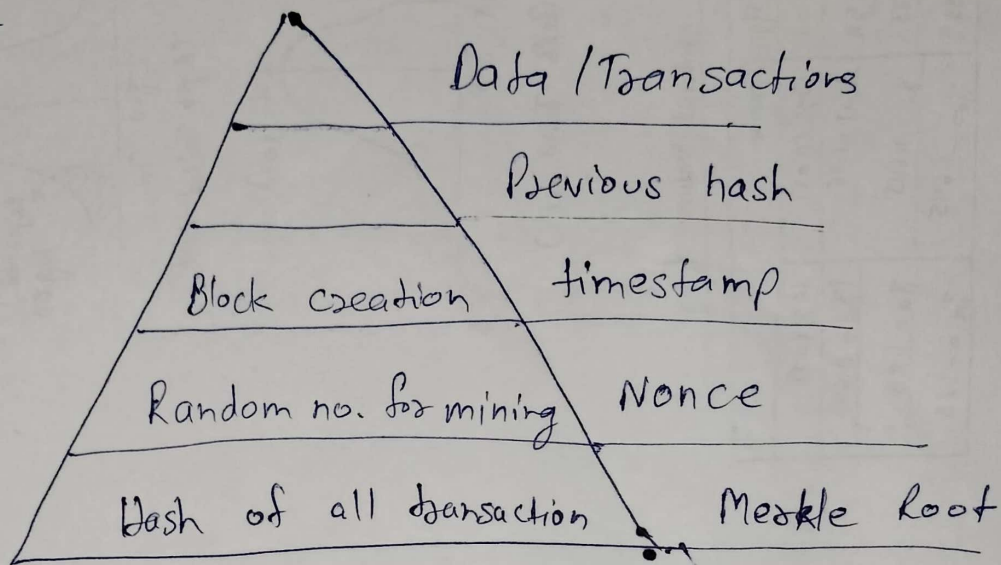 Data / Transactions
Previous hash
Block creation timestamp
Random no. for mining Nonce
Hash of all transaction Merkle Root